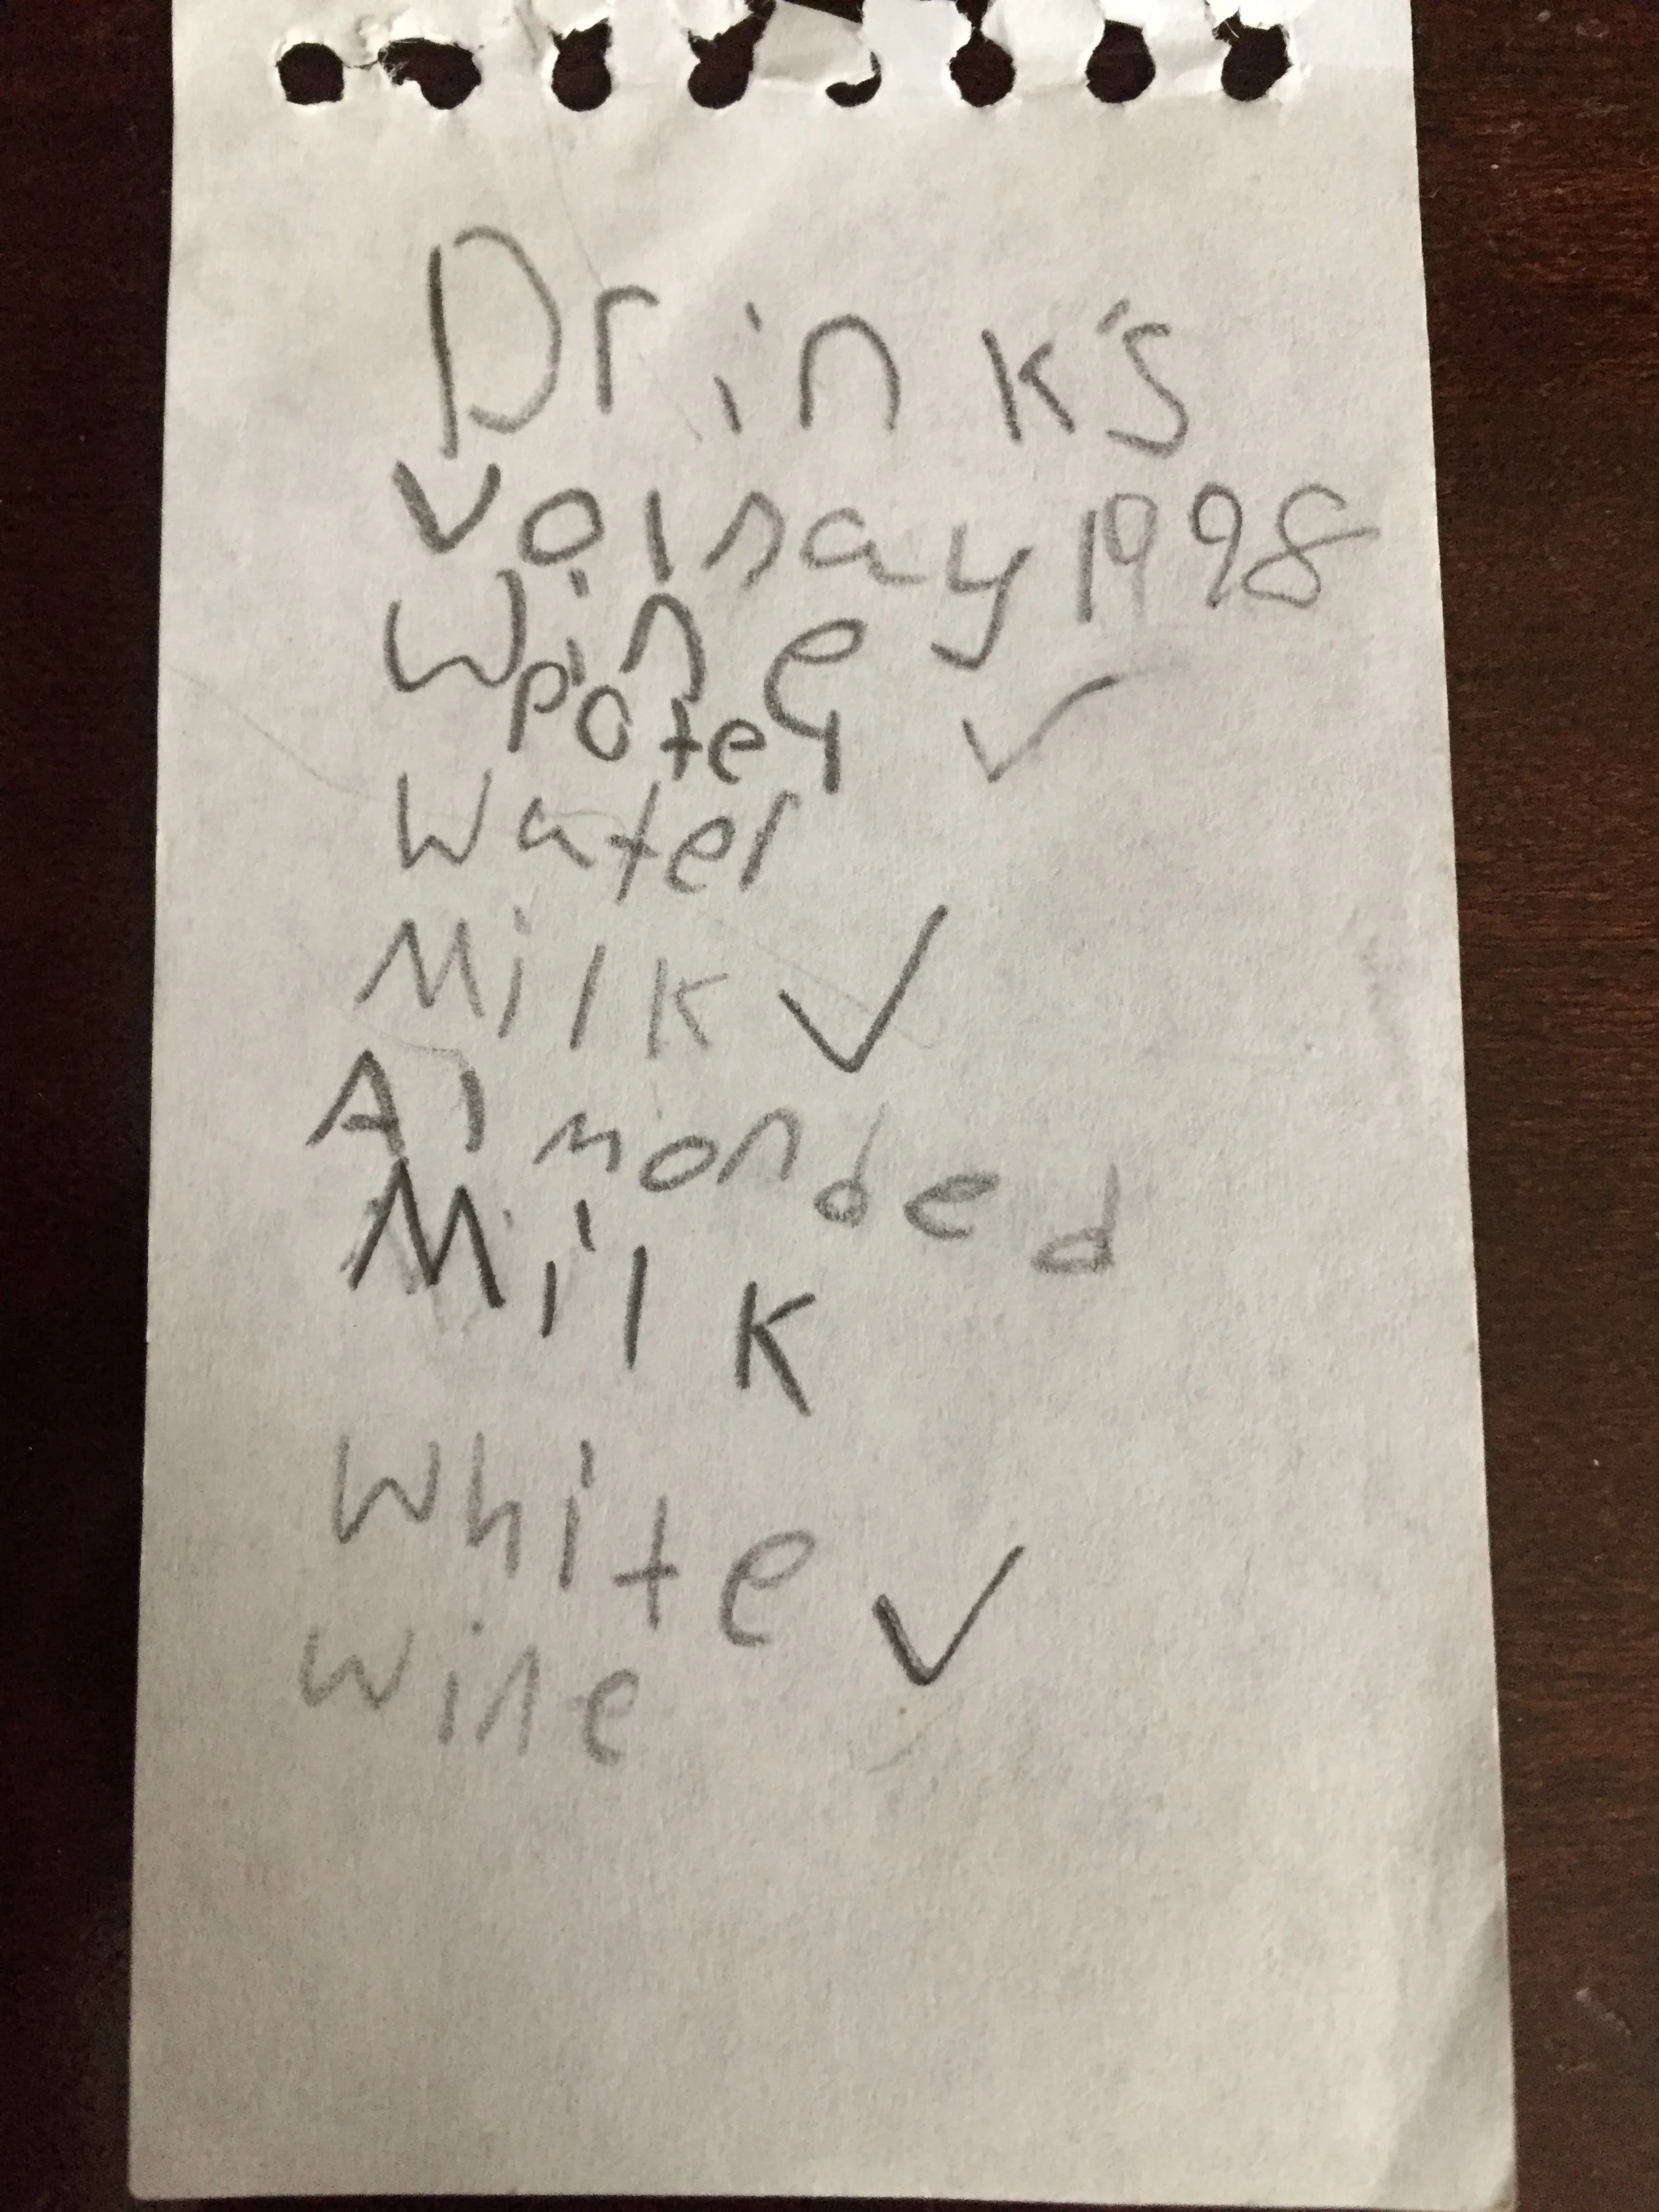 Drink's
Voinay 1998
Wine
Potey ✓
Water
Milk ✓
Almonded
Milk
White ✓
Wine